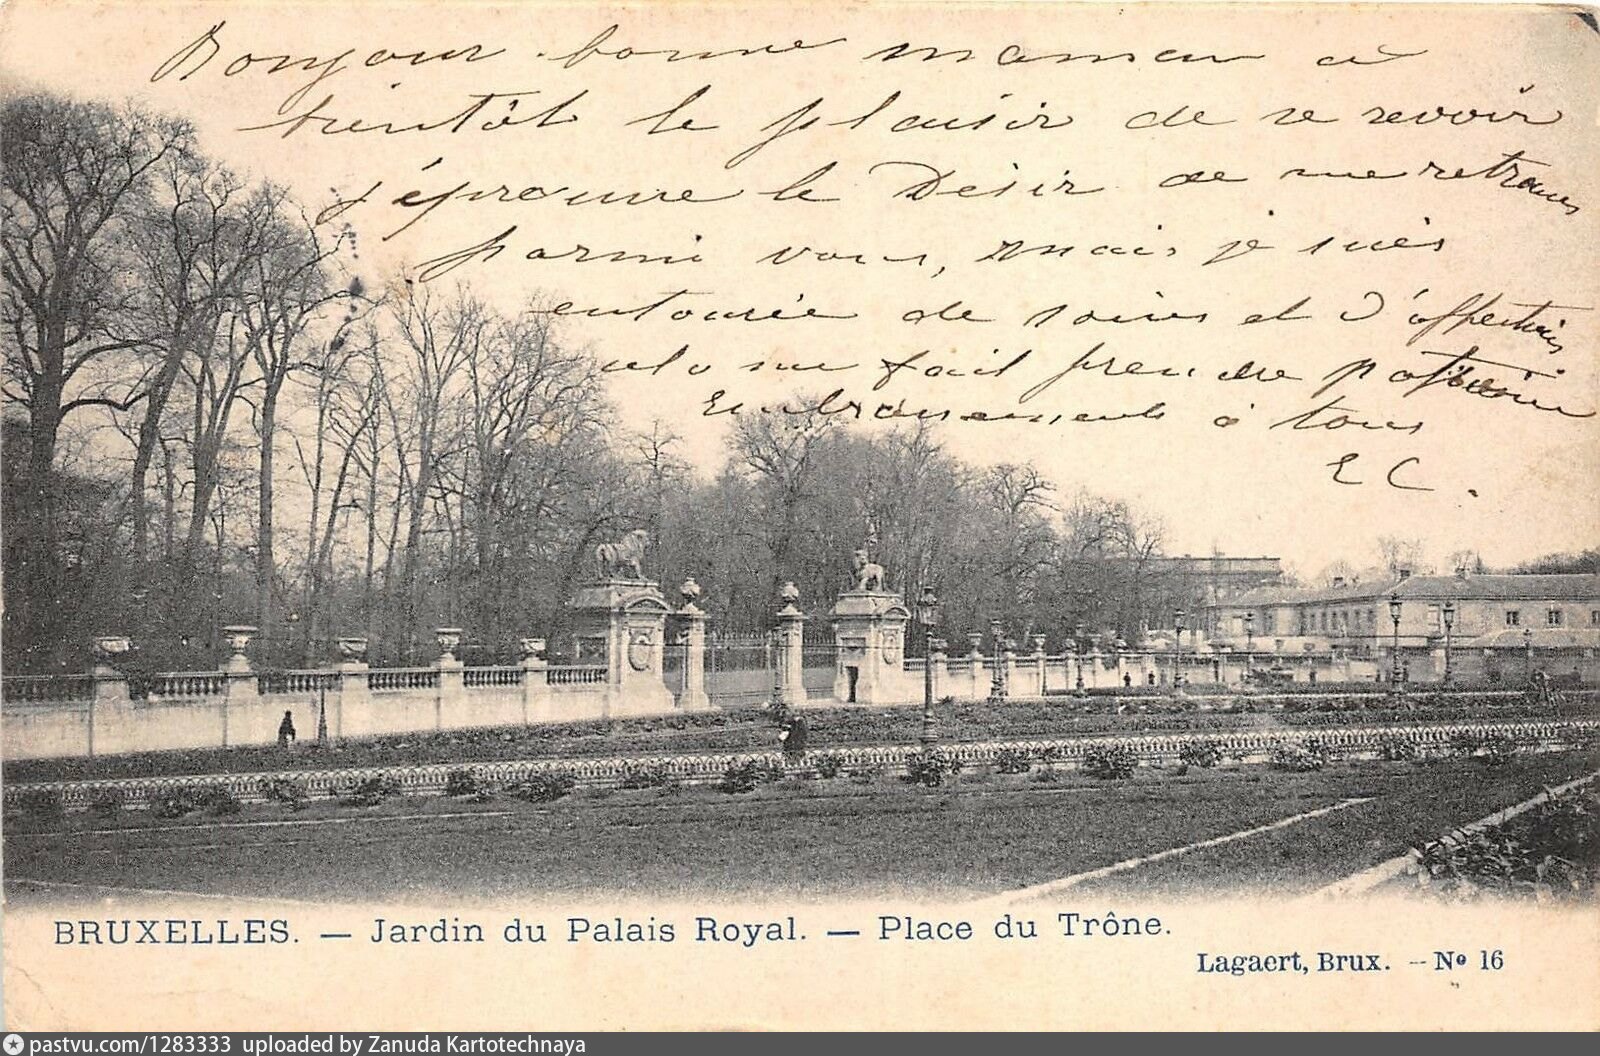 Bonjour bonne maman à
bientôt le plaisir de se revoir
j'éprouve le Désir de me retrouver
parmi vous, mais je suis
entourée de soins et d'affections
cela me fait prendre patience
Embrassements à tous
E C.
BRUXELLES. — Jardin du Palais Royal. — Place du Trône.
Lagaert, Brux. — No 16
pastvu.com/1283333 uploaded by Zanuda Kartotechnaya